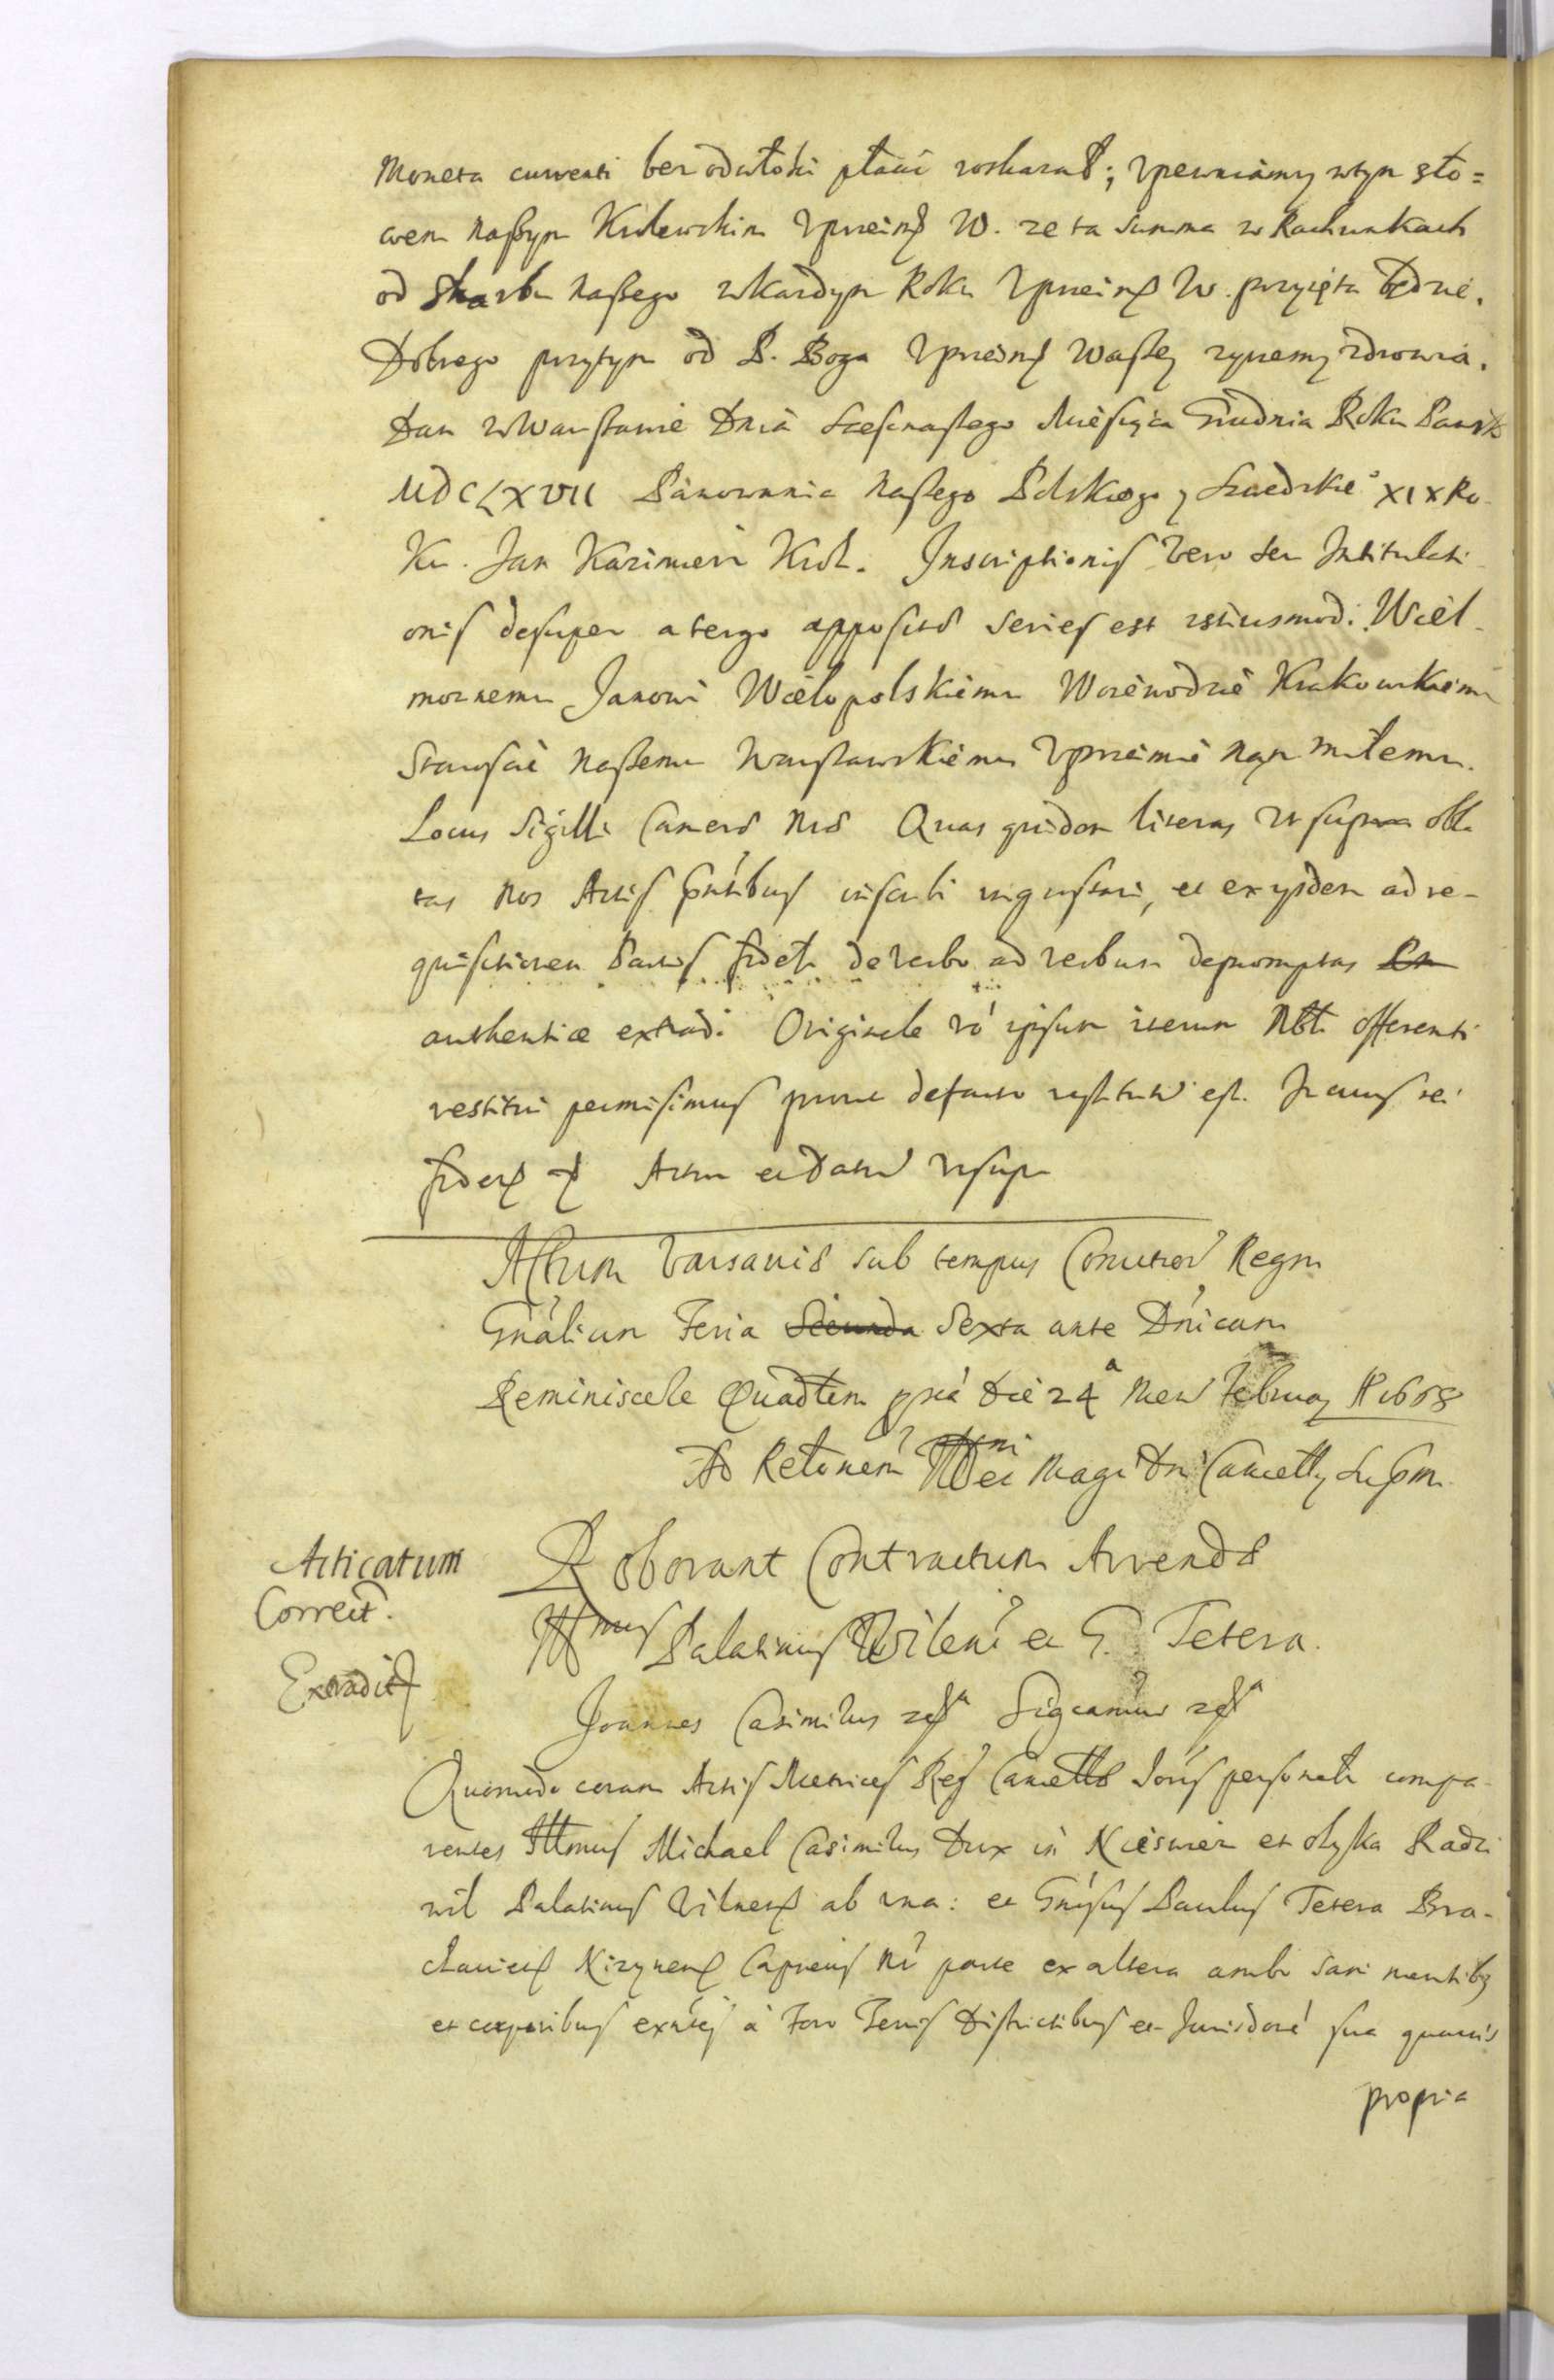 Moneta currenti bez odwłoki płacić roskazał; Vpewniamy wtym sło=
wem naszym Krolewskim Vprzeimś W. ze ta summa w Rachunkach
od Skarbu naszego wkazdym Roku Vprzeimś W. przyięta będzie.
Dobrego przytym od P. Boga Vprzeimś Waszey zyczemy zdrowia.
Dan w Warszawie Dnia szesnastego Miesiąca Grudnia Roku Pansk
MDCLXVII Panowania naszego Polskiego y Szwedzkieº XIX Ro-
Ku. Jan Kazimierz Krol. Inscriptionis vero seu Intitulati
onis desuper a tergo appositæ series est istiusmodi. Wiel-
moznemu Janowi Wielopolskiemu Woiewodzie Krakowskiemu
Staroscie naszemu Warszawskiemu Vprzeimie nam miłemu.
Locus Sigilli Cameræ nræ Quas quidem literas ut supra obla
tas nos Actis pntibus inscribi ingrossari, et ex ysdem ad re-
quisitionem Partis fidelr de verbo ad verbum depromptas
authentice extradi Originale vo ipsum iterum Nbli offerenti
restitui permisimus prout defacto restitutū est. In cuius rei
fidem &c Actum et datum ut supr
Actum Varsaviæ sub tempus Comitior Regni
Gnalium Feria Secunda Sexta ante Dnicam
Reminiscere Quadlem pria die 24 a Mens Februay A 1668
Ad Relonem Illmi Magci Dni Cancelly Supm
Acticatum
Correct.
Extradit
Roborant Contractum Arrendæ
Illmus Palatinus Vilens et G. Tetera.
Joannes Casimirus &c a Significamus &c a
Quomodo coram Actis Metrices Reg Cancellæ Noris personalr compa-
rentes Illmus Michael Casimirus Dux in Nieswiez et Olyka Radzi
wil Palatinus Vilnens ab una: et Gnosus Paulus Tetera Bra-
claviens Nizynens Capneus nr parte ex altera ambo sani mentibȝ
et corporibus existes à Foro Terris Districtibus et Jurisdone sua quavis
propria